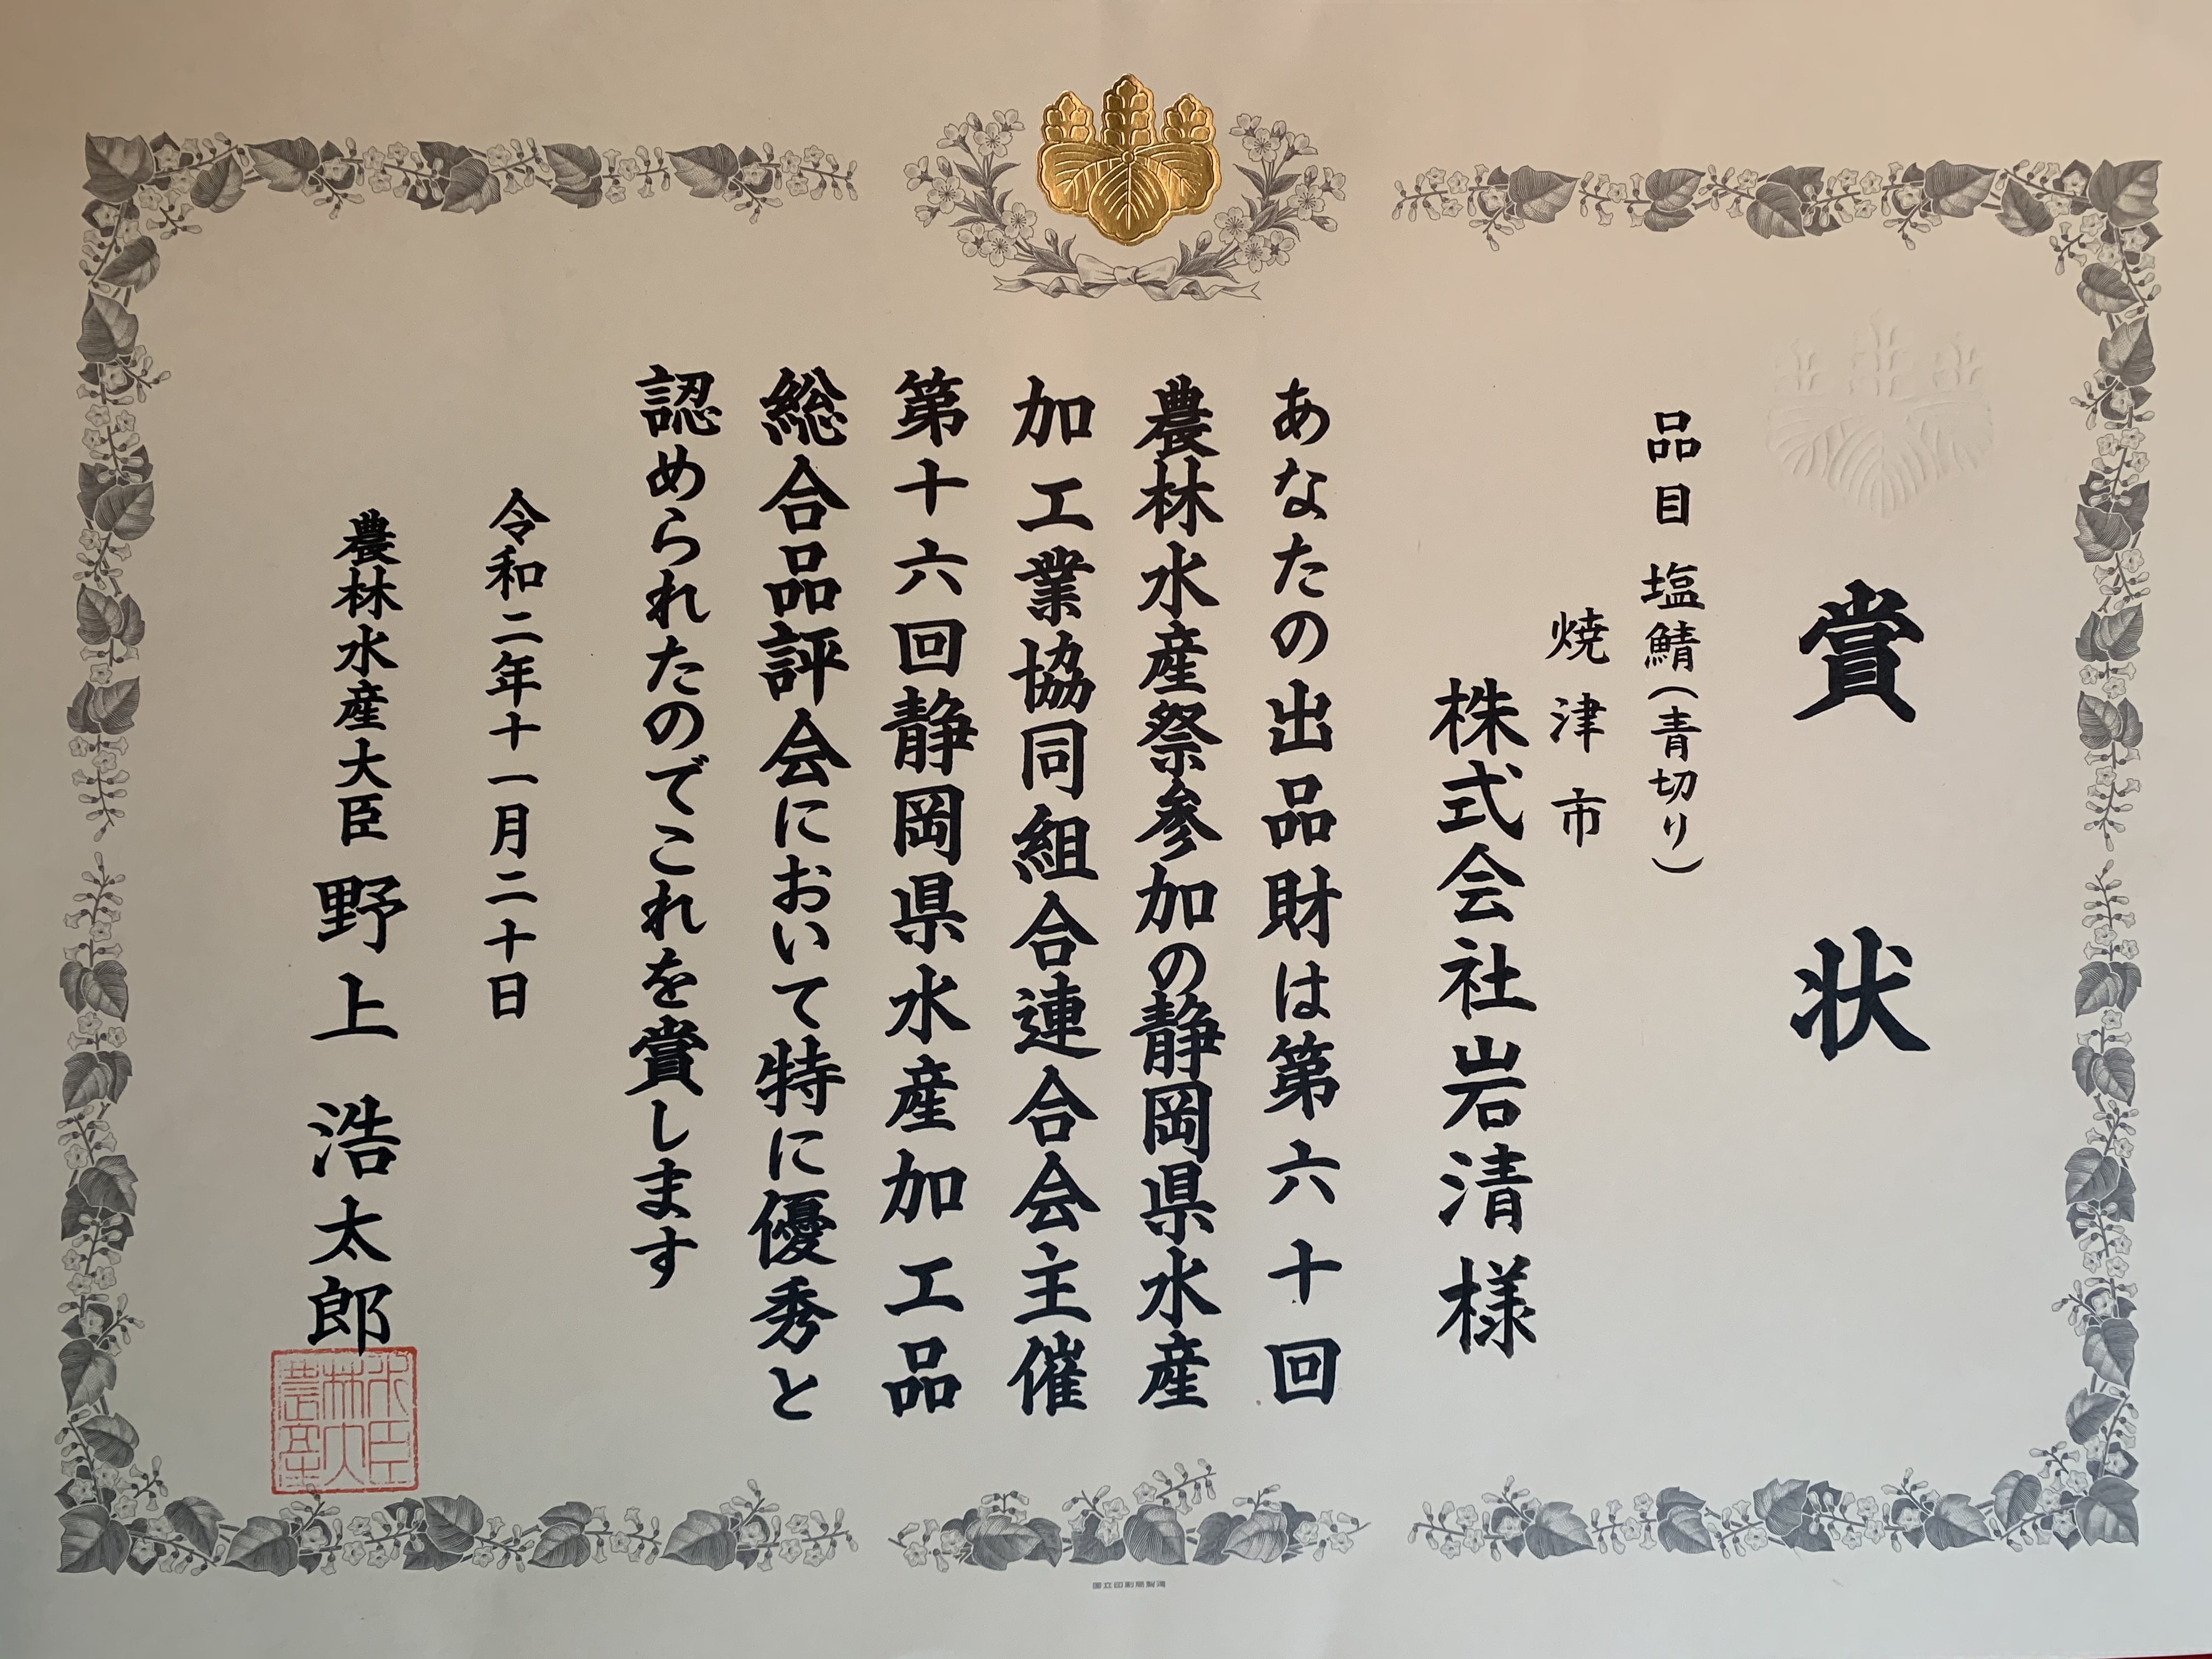 賞状
品目 塩鯖(青切り)
焼津市
株式会社岩清様
あなたの出品財は第六十回
農林水産祭参加の静岡県水産
加工業協同組合連合会主催
第十六回静岡県水産加工品
総合品評会において特に優秀と
認められたのでこれを賞します
令和二年十一月二十日
農林水産大臣 野上浩太郎
国立印刷局製造